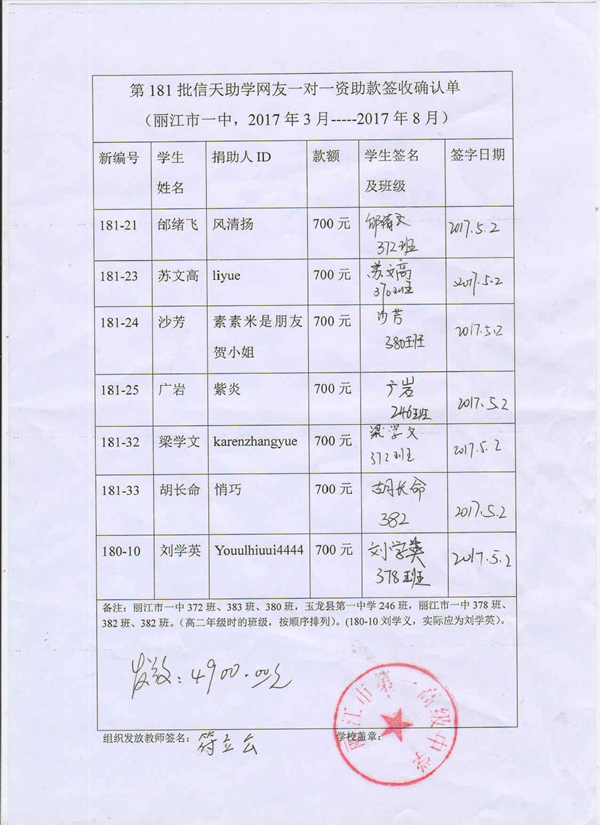 第 181 批信天助学网友一对一资助款签收确认单
（丽江市一中，2017 年 3 月-----2017 年 8 月）
新编号 学生姓名 捐助人 ID 款额 学生签名及班级 签字日期
181-21 邰绪飞 风清扬 700 元 372班 2017.5.2
181-23 苏文高 liyue 700 元 苏文高 370班 2017.5.2
181-24 沙芳 素素米是朋友贺小姐 700 元 沙芳 380班 2017.5.2
181-25 广岩 紫炎 700 元 广岩 246班 2017.5.2
181-32 梁学文 karenzhangyue 700 元 梁学文 372班 2017.5.2
181-33 胡长命 悄巧 700 元 胡长命 382 2017.5.2
180-10 刘学英 Youulhiuui4444 700 元 刘学英 378班 2017.5.2
备注：丽江市一中 372 班、383 班、380 班，玉龙县第一中学 246 班，丽江市一中 378 班、
382 班、382 班。（高二年级时的班级，按顺序排列）。(180-10 刘学义，实际应为刘学英）。
发放：4900.00元
组织发放教师签名： 学校盖章：
丽江市第一高级中学